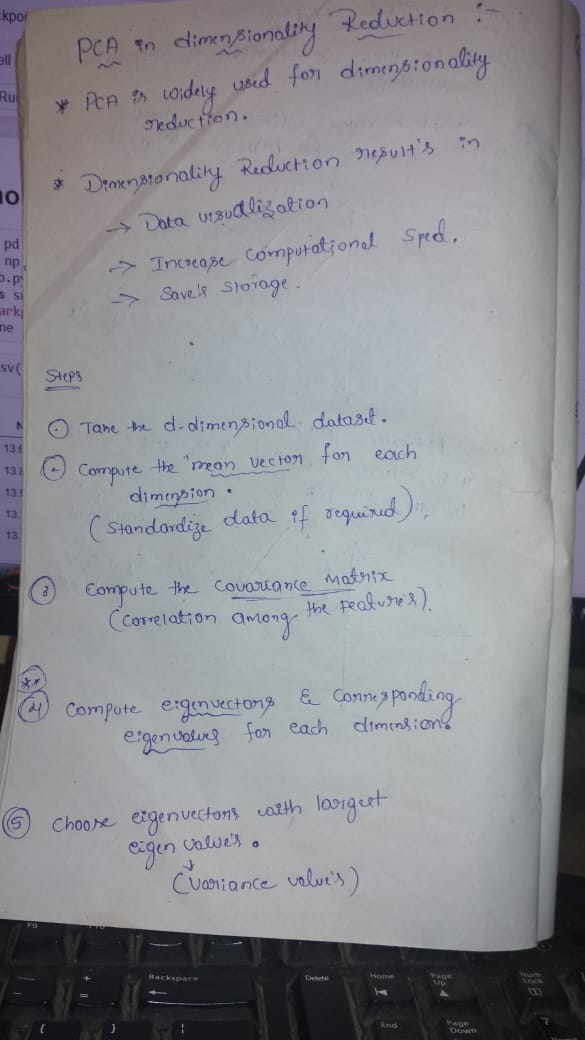 PCA in dimensionality Reduction :-
* PCA is widely used for dimensionality
reduction.
* Dimensionality Reduction result's in
→ Data visualization
→ Increase computational Sped.
→ Save's storage.
Steps
① Take the d-dimensional dataset.
② Compute the "mean vector for each
dimension.
(Standardize data if required).
③ Compute the covariance matrix
(Correlation among the feature's).
**
④ Compute eigenvectors & Corresponding
eigenvalues for each dimensions
⑤ Choose eigenvectors with largest
eigen value's.
↓
(Variance value's)
kpoi
ell
Ru
no
pd
np
ark
ne
sv(
N
13.
13.
13.
13.
13.
F9
+
=
Backspace
←
Delete
Home
Page
Up
Num
Lock
{
}
End
Page
Down
7